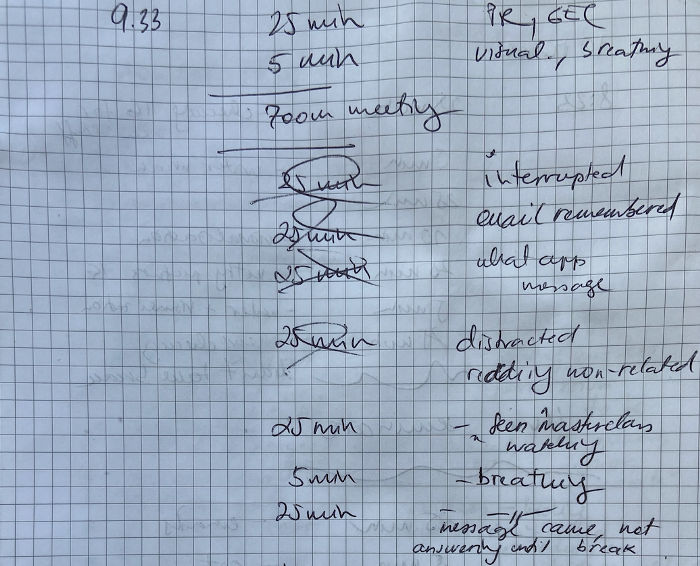 9.33 25 min PR, GEC
5 min visual., breathing
Zoom meeting
25 min interrupted
25 min email remembered
25 min what app
message
25 min distracted
reddiy non-related
25 min - seen masterclass
watching
5 min - breathing
25 min - message came, not
answering until break